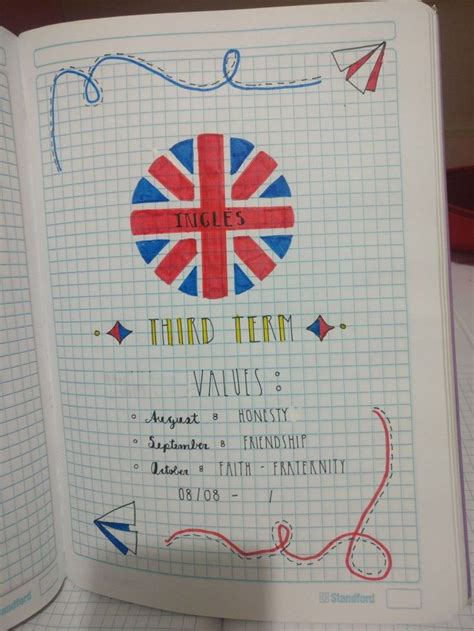 INGLÉS
THIRD TERM
VALUES :
August 8 HONESTY
September 8 FRIENDSHIP
October 8 FAITH - FRATERNITY
08/08 - /
Standford
Standford